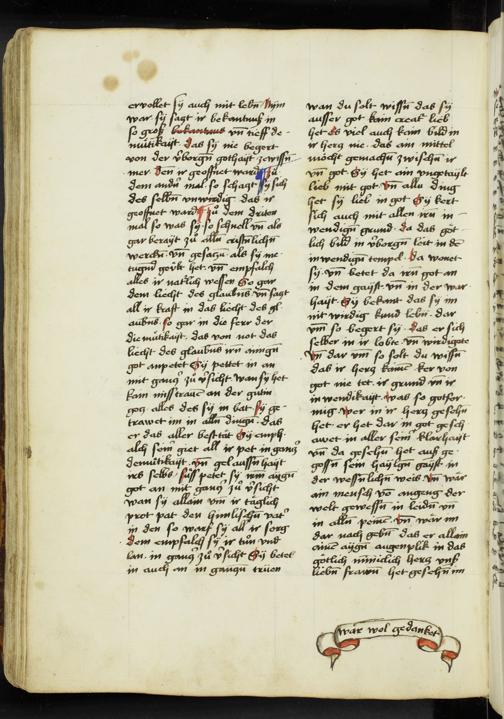 ervollet sÿ auch mit lebn̄ Nym
war sÿ sagt ir bekantnuß in
so groß bekantnus vn̄ tieff de
mütikaÿt das sÿ nie begert
von der v̈borgn̄ gothaÿt zewissn̄
mer den ir geoffnet ward Zü
dem andn̄ mal so schazt sÿ sich
des selbn̄ vnwirdig das ir
geoffnet ward Zü dem driten
mal so was sÿ so schnell vn̄ als
gar berayt zü alln̄ cristnlichn̄
werckn̄ vn̄ gesazn̄ als sÿ nie
tugnt geubt het vn̄ empfalch
alles ir natlich wessen So gar
dem liecht des glaubns vn̄ sagt
all ir kraft in das liecht des gl
aubns So gar in die ferr der
diemütikayt das von not das
liecht des glaubns irn ainign̄
got anpetet Sÿ pettet in an
mit gantz zü v̈sicht wan sÿ het
kain misstrawe an der gutin
gotz alles des sÿ in bat Sÿ ge
trawet im in alln̄ dingn̄ das
er das aller best tät Sÿ emph
alch sein̄ giet all ir pet in gantz
demütikaÿt vn̄ gelaussn̄haÿt
irs selbs süss petet sÿ irm aÿgn̄
got an mit gantz zü v̈sicht
wan sÿ allain vm̄ ir täglich
prot pat den himlischn̄ vat̄
in den so warf sÿ all ir sorg
dem empfalch sÿ ir tün vnd
lan in gantz zü v̈sicht Sÿ betet
in auch an in gantzn̄ trüen
wan du solt wissn̄ das sÿ
ausser got kain creat̄ lieb
het Es viel auch kain bild in
ir hertz nie das am mittel
möcht gemachn̄ zwischn̄ ir
vn̄ got Sÿ het ain vngetaÿlt
lieb mit got vn̄ allu ding
het sÿ lieb in got Sÿ kert
sich auch mit allen irn in
wendign̄ grund da das got
lich bild in v̈borgn̄ leit in dē
inwendign̄ tempel da wonet
sÿ vn̄ betet da irn got an
in dem gaÿst vn̄ in der war
haÿt Sÿ bekant das sÿ im
nit wirdig kund lebn̄ dar
vm̄ so begert sÿ das er sich
selber in ir lobte vn̄ wirdigote
Vn̄ dar vm̄ so solt du wissn̄
das ir hertz kaine ker von
got nie tet ir grund vn̄ ir
inwendikaÿt was so gotfor
mig wer in ir hertz gesehn̄
het er het dar in got gesch
awet in aller sein̄ klarhaÿt
vn̄ da gesehn̄ het auß ge
gossn̄ sein haÿlgn̄ gaÿst in
der wessnlichn̄ weis vn̄ wär
ain mensch von̄ angeng der
welt gewessn̄ in leidn̄ vn̄
in alln̄ peinē vn̄ wär im
dar nach gebn̄ das er allain
ainē aÿgn̄ augenplik in das
götlich minnclich hertz vnß
liebn̄ frawn̄ het gesehn̄ im
wär wol gedancket